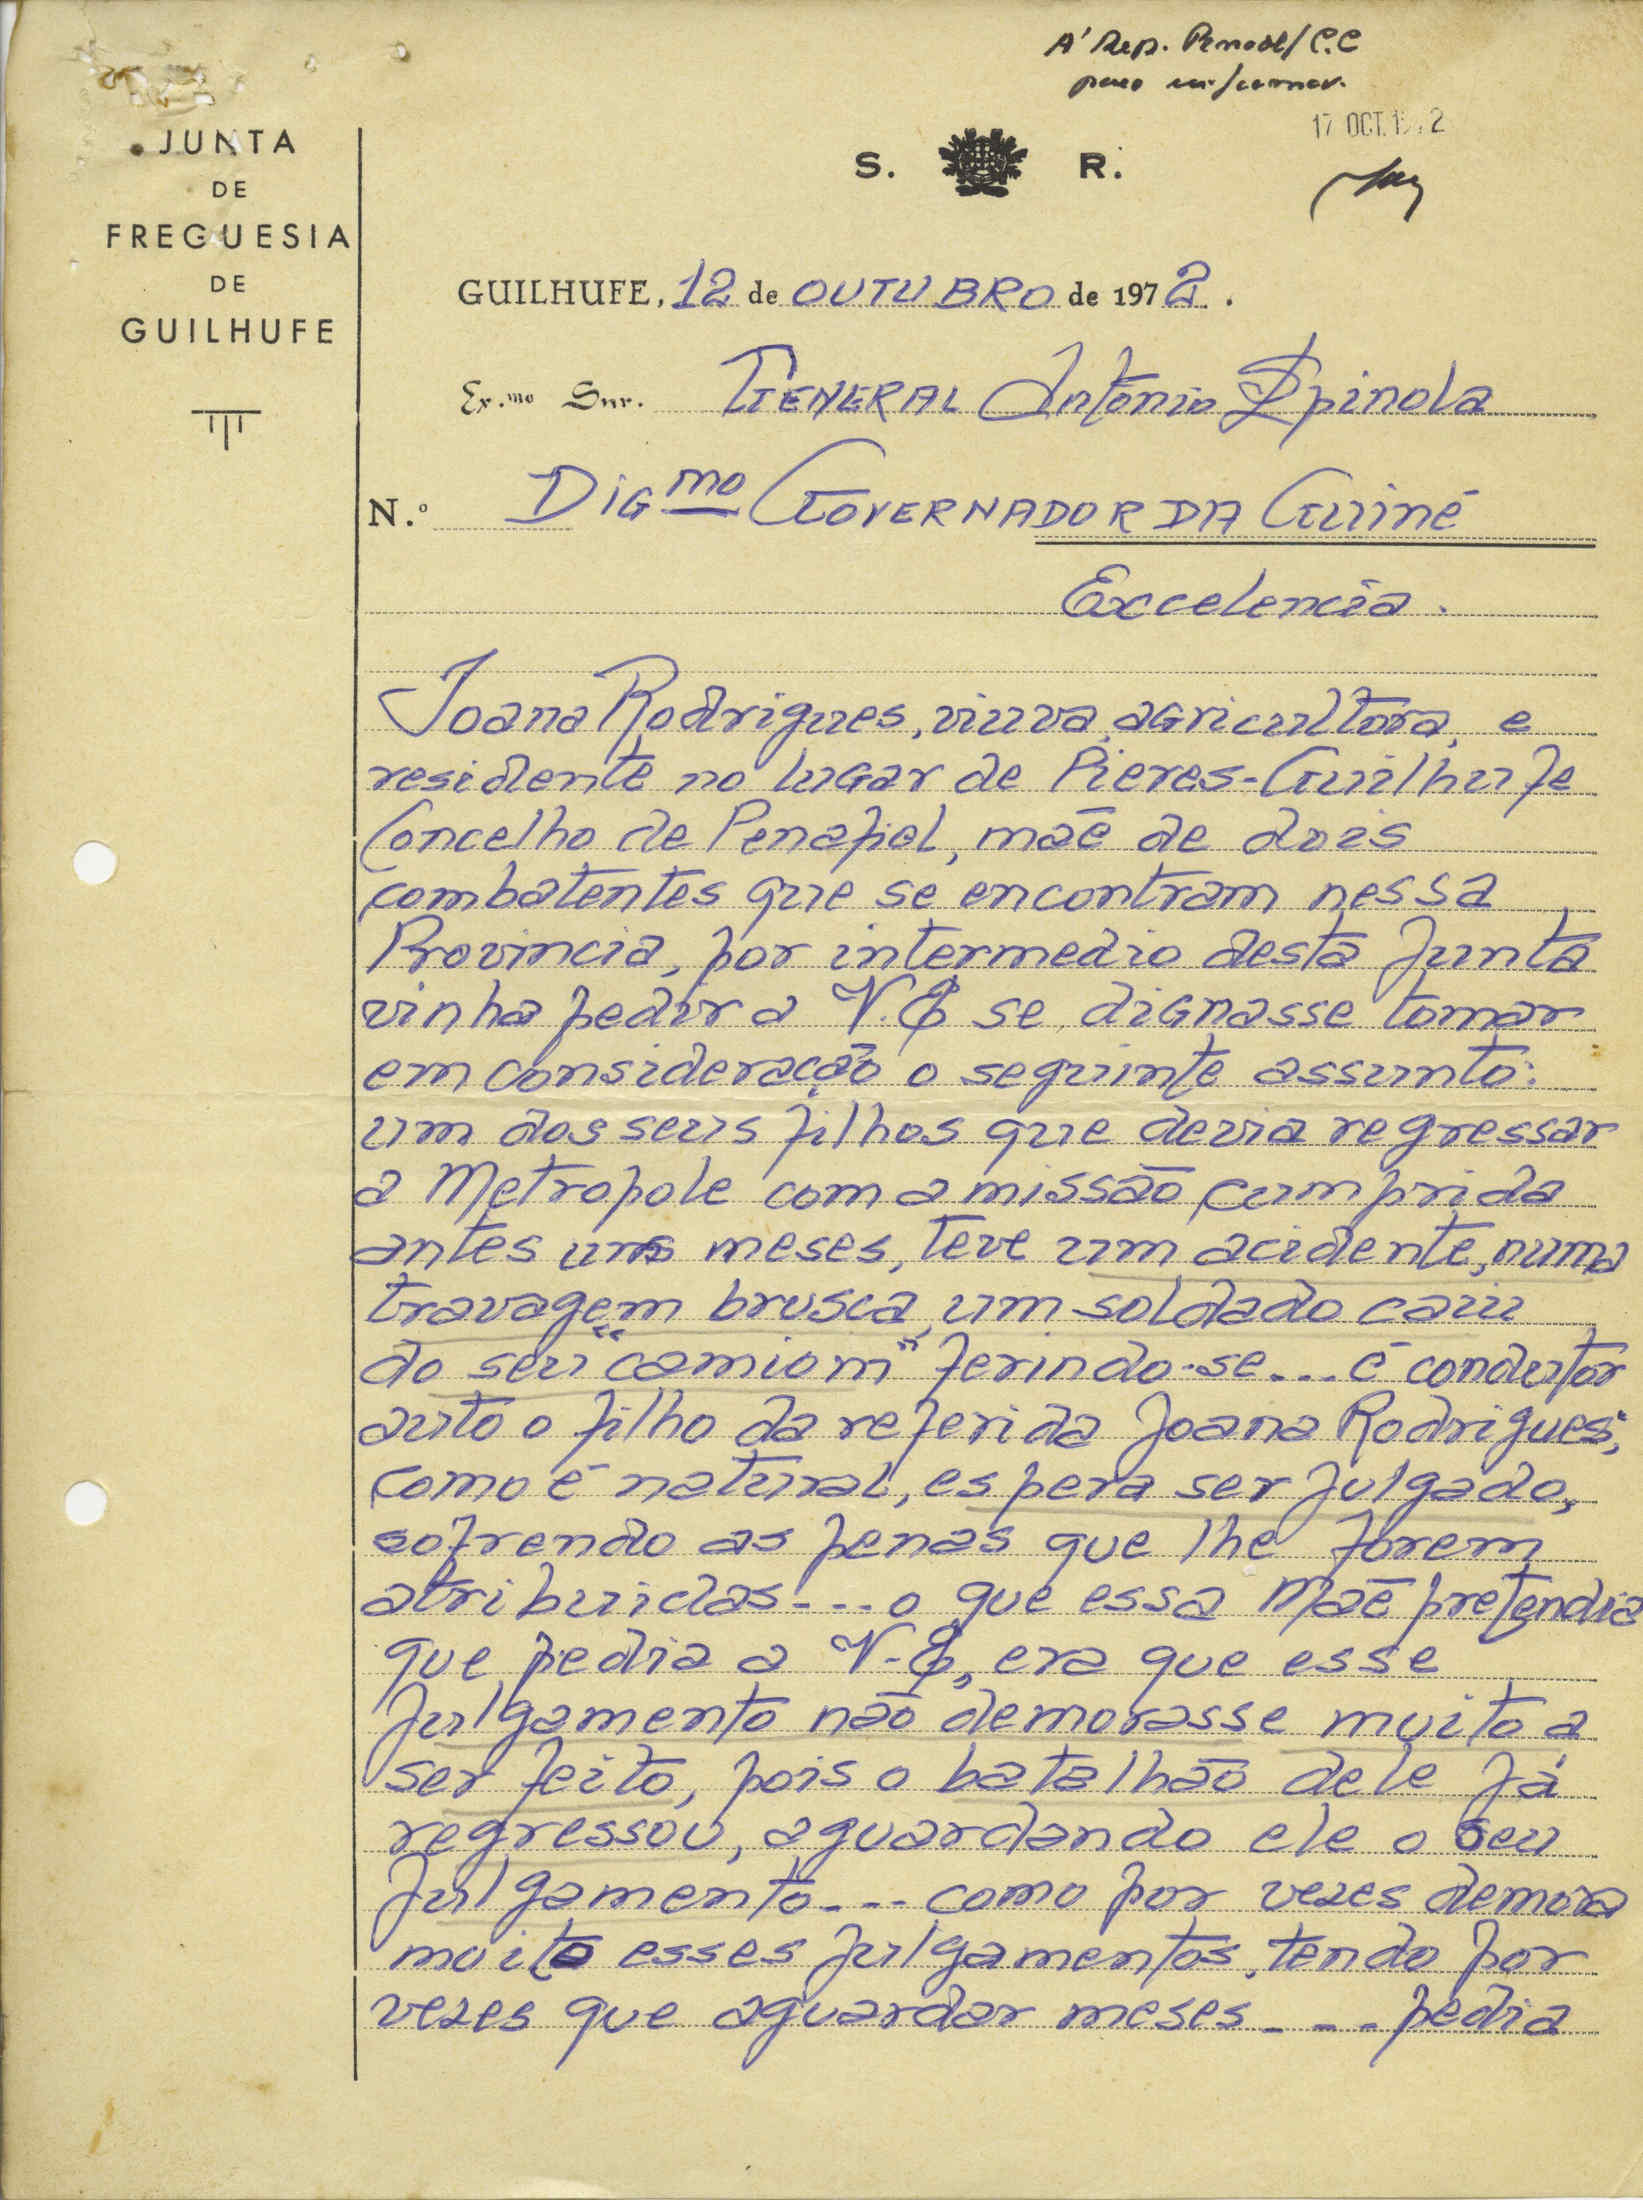 A' Rep.
para informar.
17 OCT. 1972
JUNTA
DE
FREGUESIA
DE
GUILHUFE
S. R.
GUILHUFE, 12 de OUTUBRO de 1972.
Ex.mo Snr. GENERAL António Spinola
N.º DIGmo GOVERNADOR DA Guiné
Excelencia.
Joana Rodrigues, viuva, agricultora, e
residente no lugar de Pieres-Guilhufe
Concelho de Penafiel, mãe de dois
combatentes que se encontram nessa
Provincia, por intermedio desta Junta
vinha pedir a V. E se dignasse tomar
em consideração o seguinte assunto:
um dos seus filhos que devia regressar
a Metropole com a missão cumprida
antes uns meses, teve um acidente, numa
travagem brusca, um soldado caiu
do seu "camiom" ferindo-se... é condutor
auto o filho da referida Joana Rodrigues;
como é natural, espera ser julgado,
sofrendo as penas que lhe forem
atribuidas... o que essa Mãe pretendia
que pedia a V. E, era que esse
julgamento não demorasse muito a
ser feito, pois o batalhão dele já
regressou, aguardando ele o seu
julgamento... como por vezes demora
muito esses julgamentos, tendo por
vezes que aguardar meses... pedia